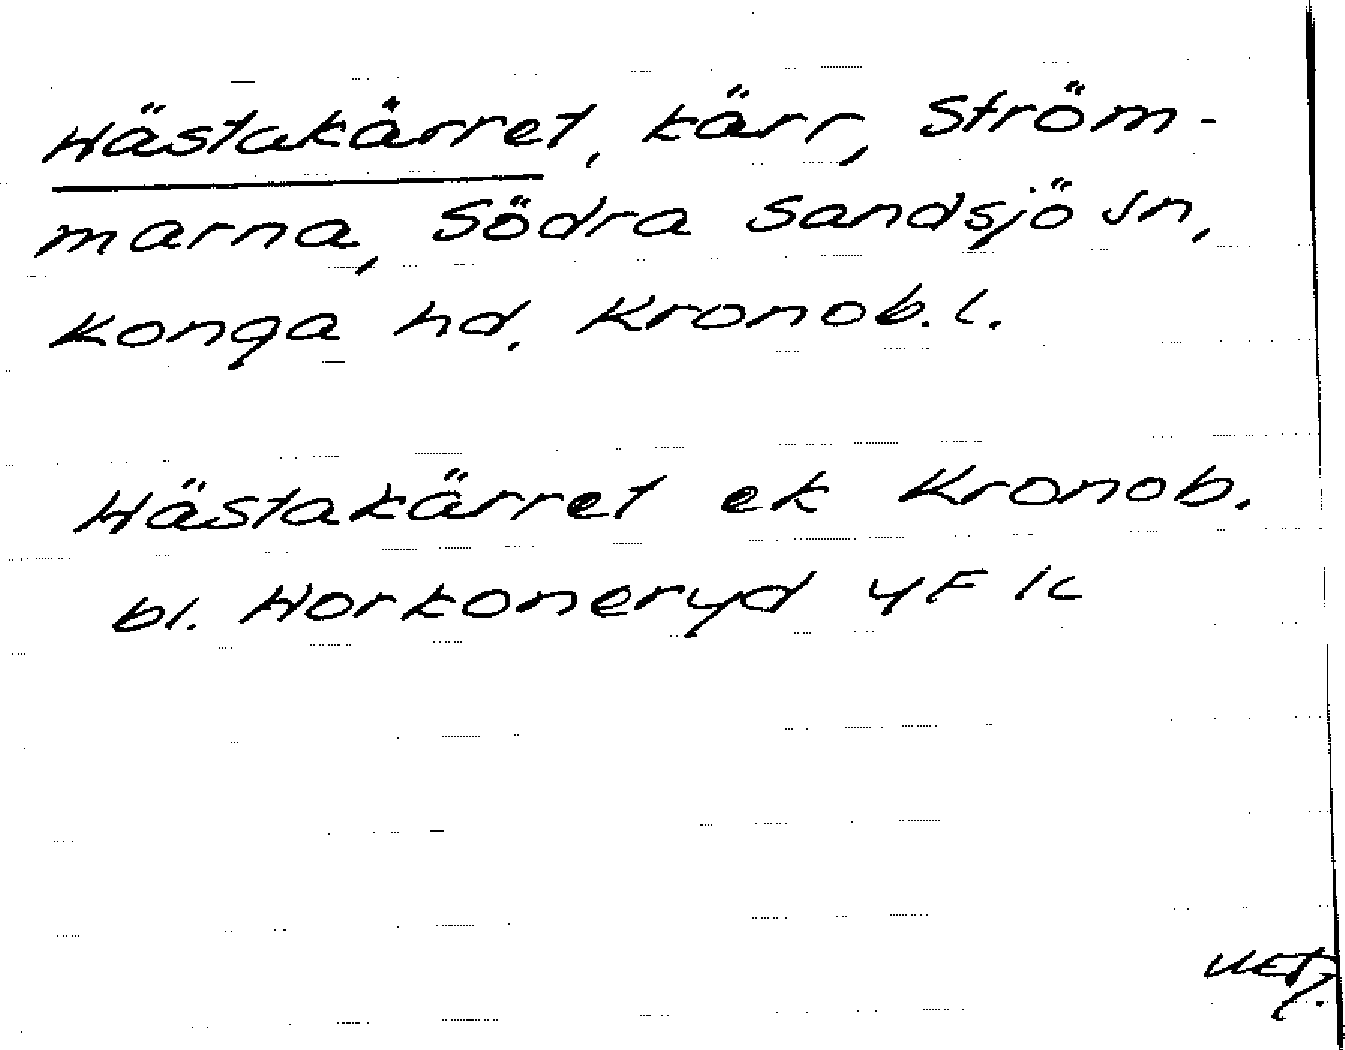 Hästakärret, kärr, Ström-
marna, Södra Sandsjö sn,
Konga hd. Kronob. l.
Hästakärret ek Kronob.
bl. Horkoneryd 4F 1c